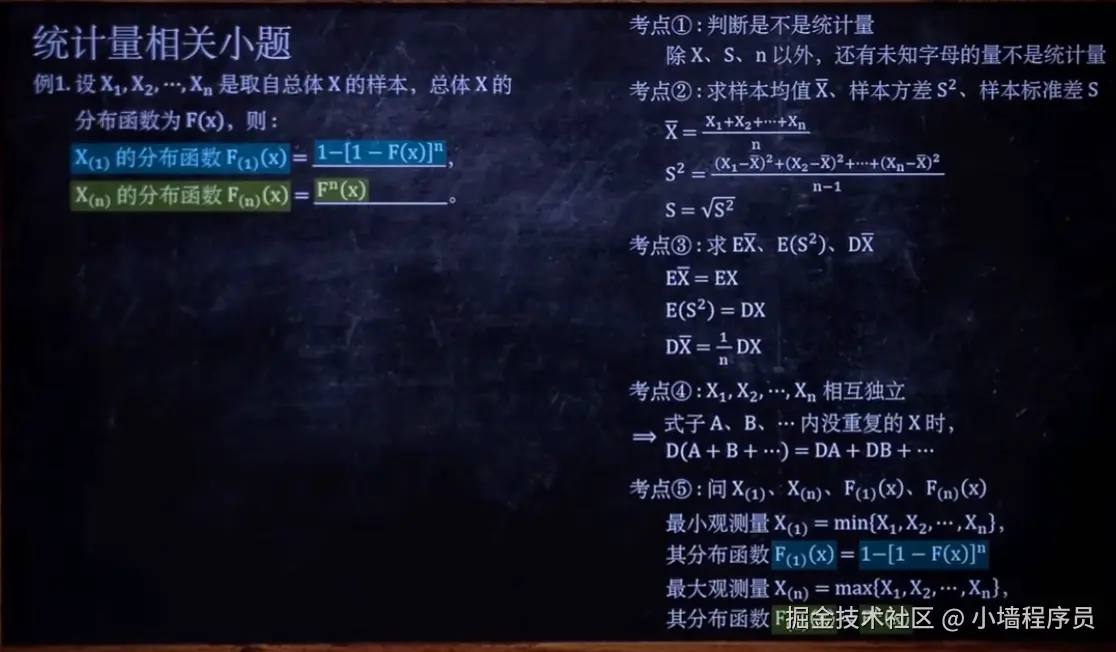 统计量相关小题
例1. 设 X₁, X₂, ⋯, Xₙ 是取自总体 X 的样本，总体 X 的
分布函数为 F(x)，则：
X₍₁₎ 的分布函数 F₍₁₎(x) = 1−[1 − F(x)]ⁿ，
X₍ₙ₎ 的分布函数 F₍ₙ₎(x) = Fⁿ(x)。
考点①：判断是不是统计量
除 X、S、n 以外，还有未知字母的量不是统计量
考点②：求样本均值 X̅、样本方差 S²、样本标准差 S
X̅ = (X₁+X₂+⋯+Xₙ)/n
S² = ((X₁−X̅)²+(X₂−X̅)²+⋯+(Xₙ−X̅)²)/(n−1)
S = √S²
考点③：求 EX̅、E(S²)、DX̅
EX̅ = EX
E(S²) = DX
DX̅ = 1/n DX
考点④：X₁, X₂, ⋯, Xₙ 相互独立
⟹ 式子 A、B、⋯ 内没重复的 X 时，
D(A + B + ⋯) = DA + DB + ⋯
考点⑤：问 X₍₁₎、X₍ₙ₎、F₍₁₎(x)、F₍ₙ₎(x)
最小观测量 X₍₁₎ = min{X₁, X₂, ⋯, Xₙ}，
其分布函数 F₍₁₎(x) = 1−[1 − F(x)]ⁿ
最大观测量 X₍ₙ₎ = max{X₁, X₂, ⋯, Xₙ}，
其分布函数
掘金技术社区 @ 小墙程序员